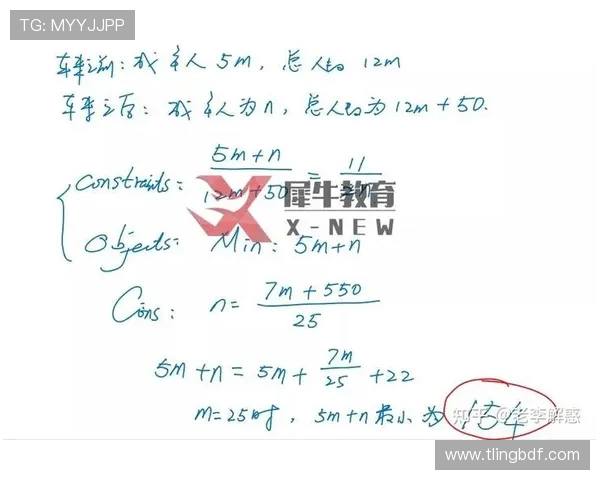 TG: MYYJJPP
车来之前: 成年人 5m, 总人数 12m
车来之后: 成年人为 n, 总人数为 12m + 50.
Constraints: (5m+n)/(12m+50) = 11/
犀牛教育
X-NEW
Objects: Min: 5m+n
Cons: n = (7m + 550)/25
5m + n = 5m + 7m/25 + 22
m=25时, 5m+n 最小为 154
知乎 @老李解惑
www.tlingbdf.com